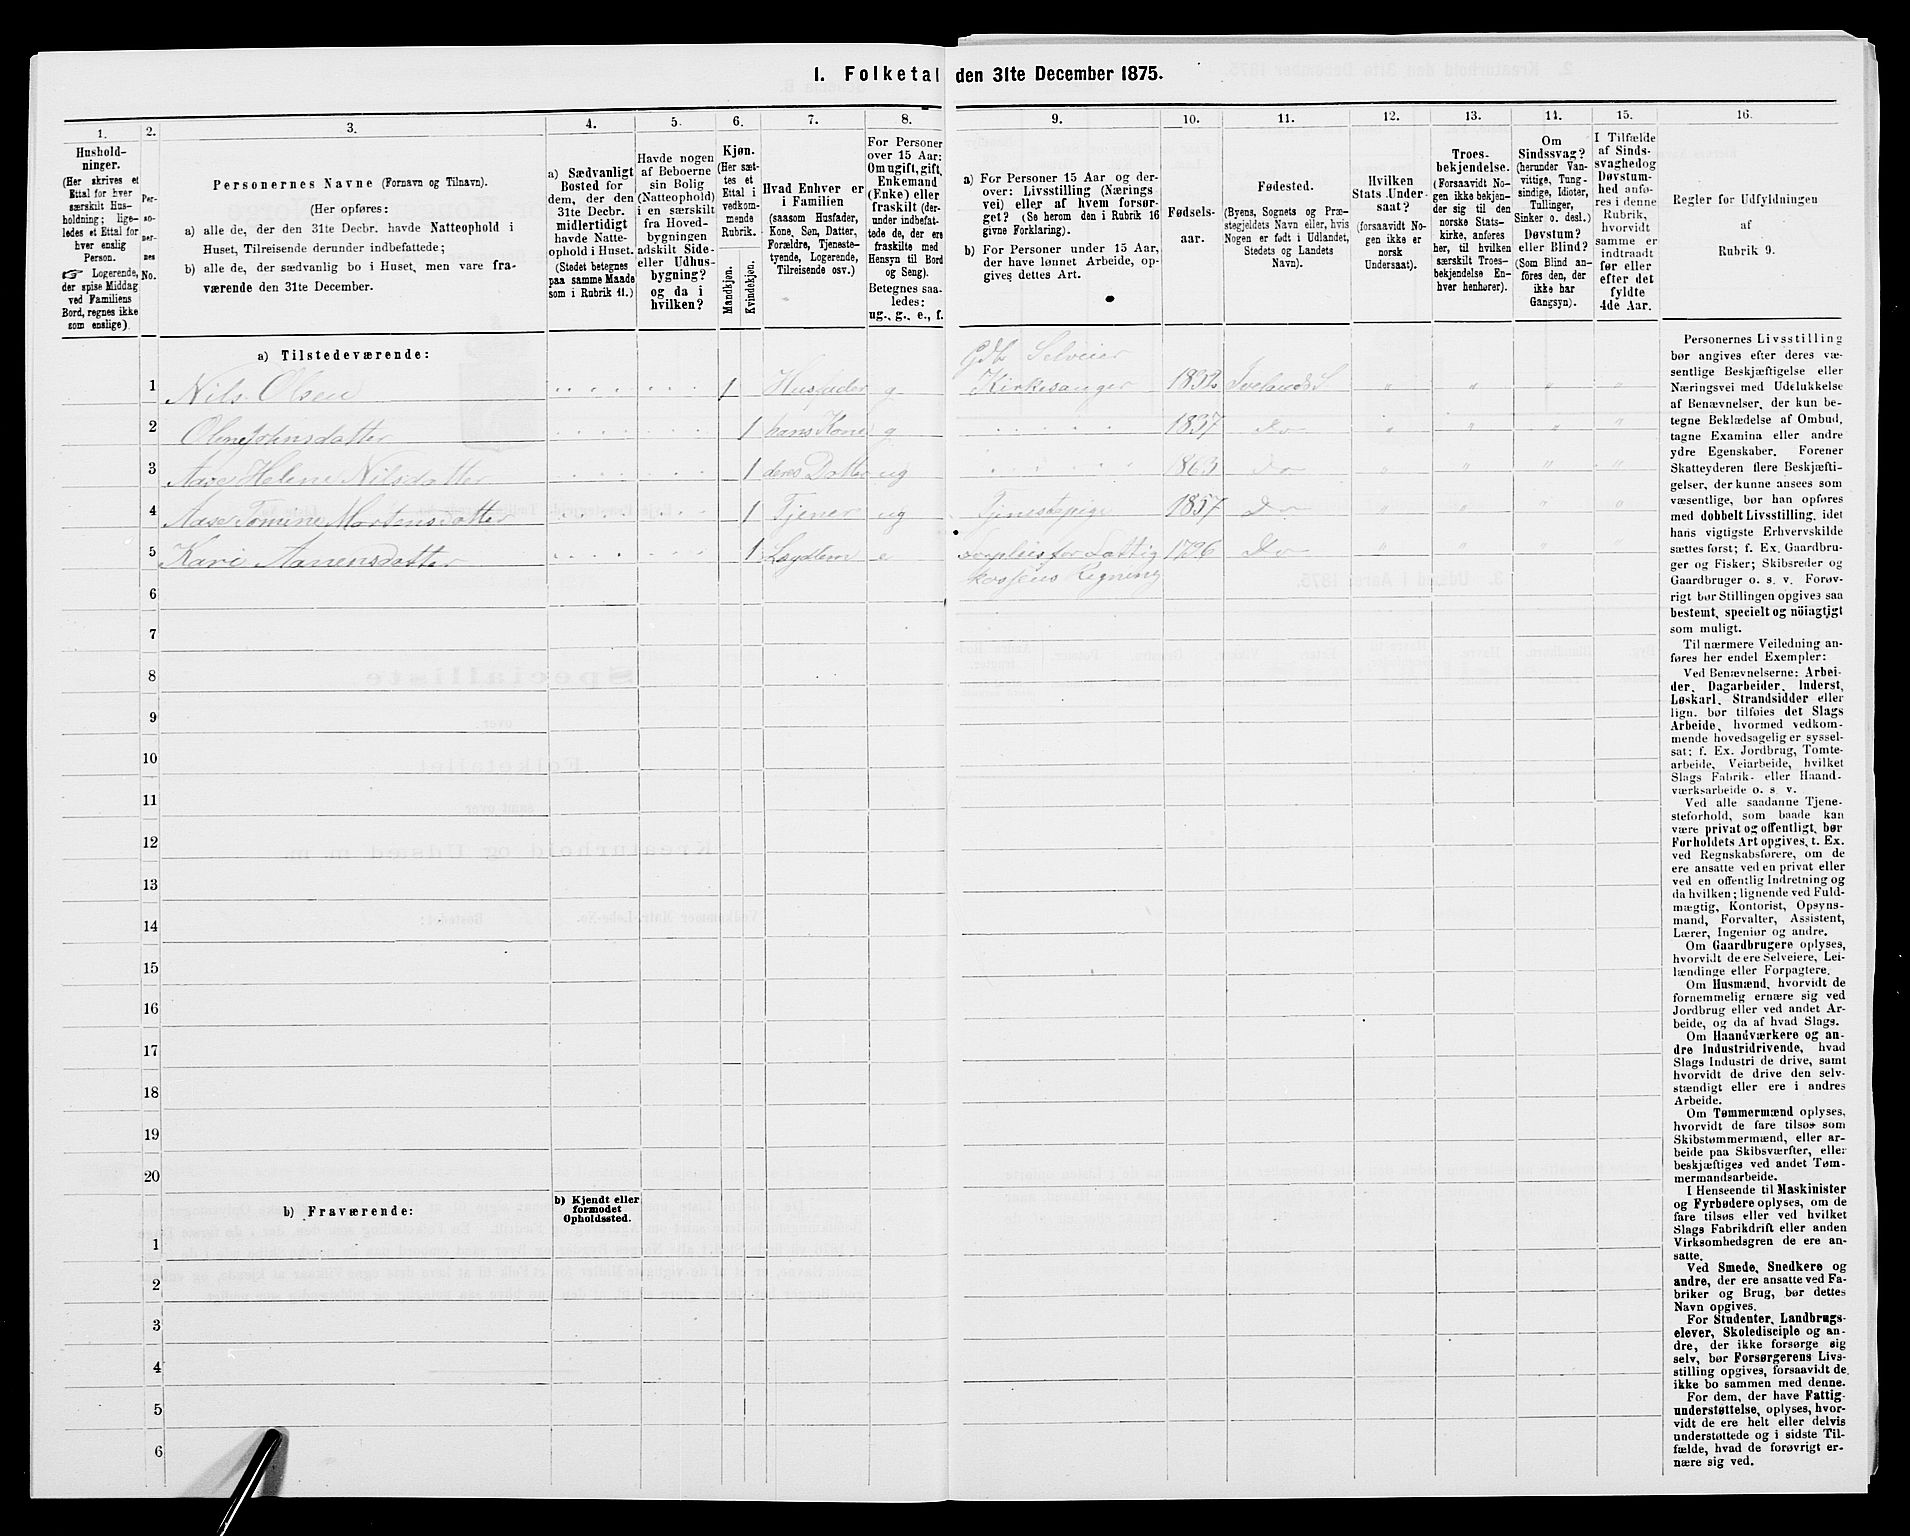 1. Folketal den 31te December 1875.
1.
2.
3.
4.
5.
6.
7.
8.
9.
10.
11.
12.
13.
14.
15.
16.
Hushold-
ninger.
(Her skrives et
Ettal for hver
særskilt Hus-
holdning; lige-
ledes et Ettal for
hver enslig
Person.
☞ Logerende,
der spise Middag
ved Familiens
Bord, regnes ikke
som enslige).
Per-
so-
ner-
nes
No.
Personernes Navne (Fornavn og Tilnavn).
(Her opføres:
a) alle de, der den 31te Decbr. havde Natteophold i
Huset, Tilreisende derunder indbefattede;
b) alle de, der sædvanlig bo i Huset, men vare fra-
værende den 31te December.
a) Sædvanligt
Bosted for
dem, der den
31te Decbr.
midlertidigt
havde Natte-
ophold i Huset.
(Stedet betegnes
paa samme Maade
som i Rubrik 11.)
Havde nogen
af Beboerne
sin Bolig
(Natteophold)
i en særskilt
fra Hoved-
bygningen
adskilt Side-
eller Udhus-
bygning?
og da i
hvilken?
Kjøn.
(Her sæt-
tes et
Ettal i
vedkom-
mende
Rubrik.
Mandkjøn.
Kvindekjøn.
Hvad Enhver er
i Familien
(saasom Husfader,
Kone, Søn, Datter,
Forældre, Tjeneste-
tyende, Logerende,
Tilreisende osv.)
For Personer
over 15 Aar:
Om ugift, gift,
Enkemand
(Enke) eller
fraskilt (der-
under indbefat-
tede de, der ere
fraskilte med
Hensyn til Bord
og Seng).
Betegnes saa-
ledes:
ug., g., e., f.
a) For Personer 15 Aar og der-
over: Livsstilling (Nærings-
vei) eller af hvem forsør-
get? (Se herom den i Rubrik 16
givne Forklaring).
b) For Personer under 15 Aar,
der have lønnet Arbeide, op-
gives dettes Art.
Fødsels-
aar.
Fødested.
(Byens, Sognets og Præ-
stegjeldets Navn eller, hvis
Nogen er født i Udlandet,
Stedets og Landets
Navn).
Hvilken
Stats Under-
saat?
(forsaavidt No-
gen ikke er
norsk
Undersaat).
Troes-
bekjendelse.
(Forsaavidt No-
gen ikke bekjen-
der sig til den
norske Stats-
kirke, anføres
her, til hvilken
særskilt Troes-
bekjendelse En-
hver henhører).
Om
Sindssvag?
(herunder Van-
vittige, Tung-
sindige, Idioter,
Tullinger,
Sinker o. desl.)
Døvstum?
eller Blind?
(Som Blind an-
føres den, der
ikke har
Gangsyn).
I Tilfælde
af Sinds-
svaghed og
Døvstum-
hed anfø-
res i denne
Rubrik,
hvorvidt
samme er
indtraadt
før eller
efter det
fyldte
4de Aar.
Regler for Udfyldningen
af
Rubrik 9.
a) Tilstedeværende:
Gdb Selveier
1 Nils Olsen 1 Husfader g Kirkesanger 1832 Ivelands S " " " "
2 Oline Johnsdatter 1 hans Kone g 1837 Do " " " "
3 Aase Helene Nilsdatter 1 deres Datter ug 1863 Do " " " "
4 Aase Tomine Mortensdatter 1 Tjener ug Tjenestepige 1857 Do " " " "
5 Kari Aanensdatter 1 Lægdlem e forpleies for Fattig 1796 Do " " " "
kassens Regning
6
7
8
9
10
11
12
13
14
15
16
17
18
19
20
b) Fraværende:
b) Kjendt eller
formodet
Opholdssted.
1
2
3
4
5
6
Personernes Livsstilling
bør angives efter deres væ-
sentlige Beskjæftigelse eller
Næringsvei med Udelukkelse
af Benævnelser, der kun be-
tegne Beklædelse af Ombud,
tagne Examina eller andre
ydre Egenskaber. Forener
Skatteyderen flere Beskjæfti-
gelser, der kunne ansees som
væsentlige, bør han opføres
med dobbelt Livsstilling, idet
hans vigtigste Erhvervskilde
sættes først; f. Ex. Gaardbru-
ger og Fisker; Skibsreder og
Gaardbruger o. s. v. Forøv-
rigt bør Stillingen opgives saa
bestemt, specielt og nöiagtigt
som muligt.
Til nærmere Veiledning an-
føres her endel Exempler:
Ved Benævnelserne: Arbei-
der, Dagarbeider, Inderst,
Løskarl, Strandsidder eller
lign. bør tilføies det Slags
Arbeide, hvormed vedkom-
mende hovedsagelig er syssel-
sat; f. Ex. Jordbrug, Tomte-
arbeide, Veiarbeide, hvilket
Slags Fabrik- eller Haand-
værksarbeide o. s. v.
Ved alle saadanne Tjene-
steforhold, som baade kan
være privat og offentligt, bør
Forholdets Art opgives, t. Ex.
ved Regnskabsførere, om de
ere ansatte ved en privat eller
ved en offentlig Indretning og
da hvilken; lignende ved Fuld-
mægtig, Kontorist, Opsyns-
mand, Forvalter, Assistent,
Lærer, Ingeniør og andre.
Om Gaardbrugere oplyses,
hvorvidt de ere Selveiere, Lei-
lændinge eller Forpagtere.
Om Husmænd, hvorvidt de
fornemmelig ernære sig ved
Jordbrug eller ved andet Ar-
beide, og da af hvad Slags.
Om Haandværkere og an-
dre Industridrivende, hvad
Slags Industri de drive, samt
hvorvidt de drive den selv-
stændigt eller ere i andres
Arbeide.
Om Tømmermænd oplyses,
hvorvidt de fare tilsøs som
Skibstømmermænd, eller ar-
beide paa Skibsværfter, eller
beskjæftiges ved andet Tøm-
mermandsarbeide.
I Henseende til Maskinister
og Fyrbødere oplyses, om de
fare tilsøs eller ved hvilket
Slags Fabrikdrift eller anden
Virksomhedsgren de ere an-
satte.
Ved Smede, Snedkere og
andre, der ere ansatte ved Fa-
briker og Brug, bør dettes
Navn opgives.
For Studenter, Landbrugs-
elever, Skoledisciple og an-
dre, der ikke forsørge sig
selv, bør Forsørgerens Livs-
stilling opgives, forsaavidt de
ikke bo sammen med denne.
For dem, der have Fattig-
understøttelse, oplyses, hvor-
vidt de ere helt eller delvis
understøttede og i sidste Til-
fælde, hvad de forøvrigt er-
nære sig ved.